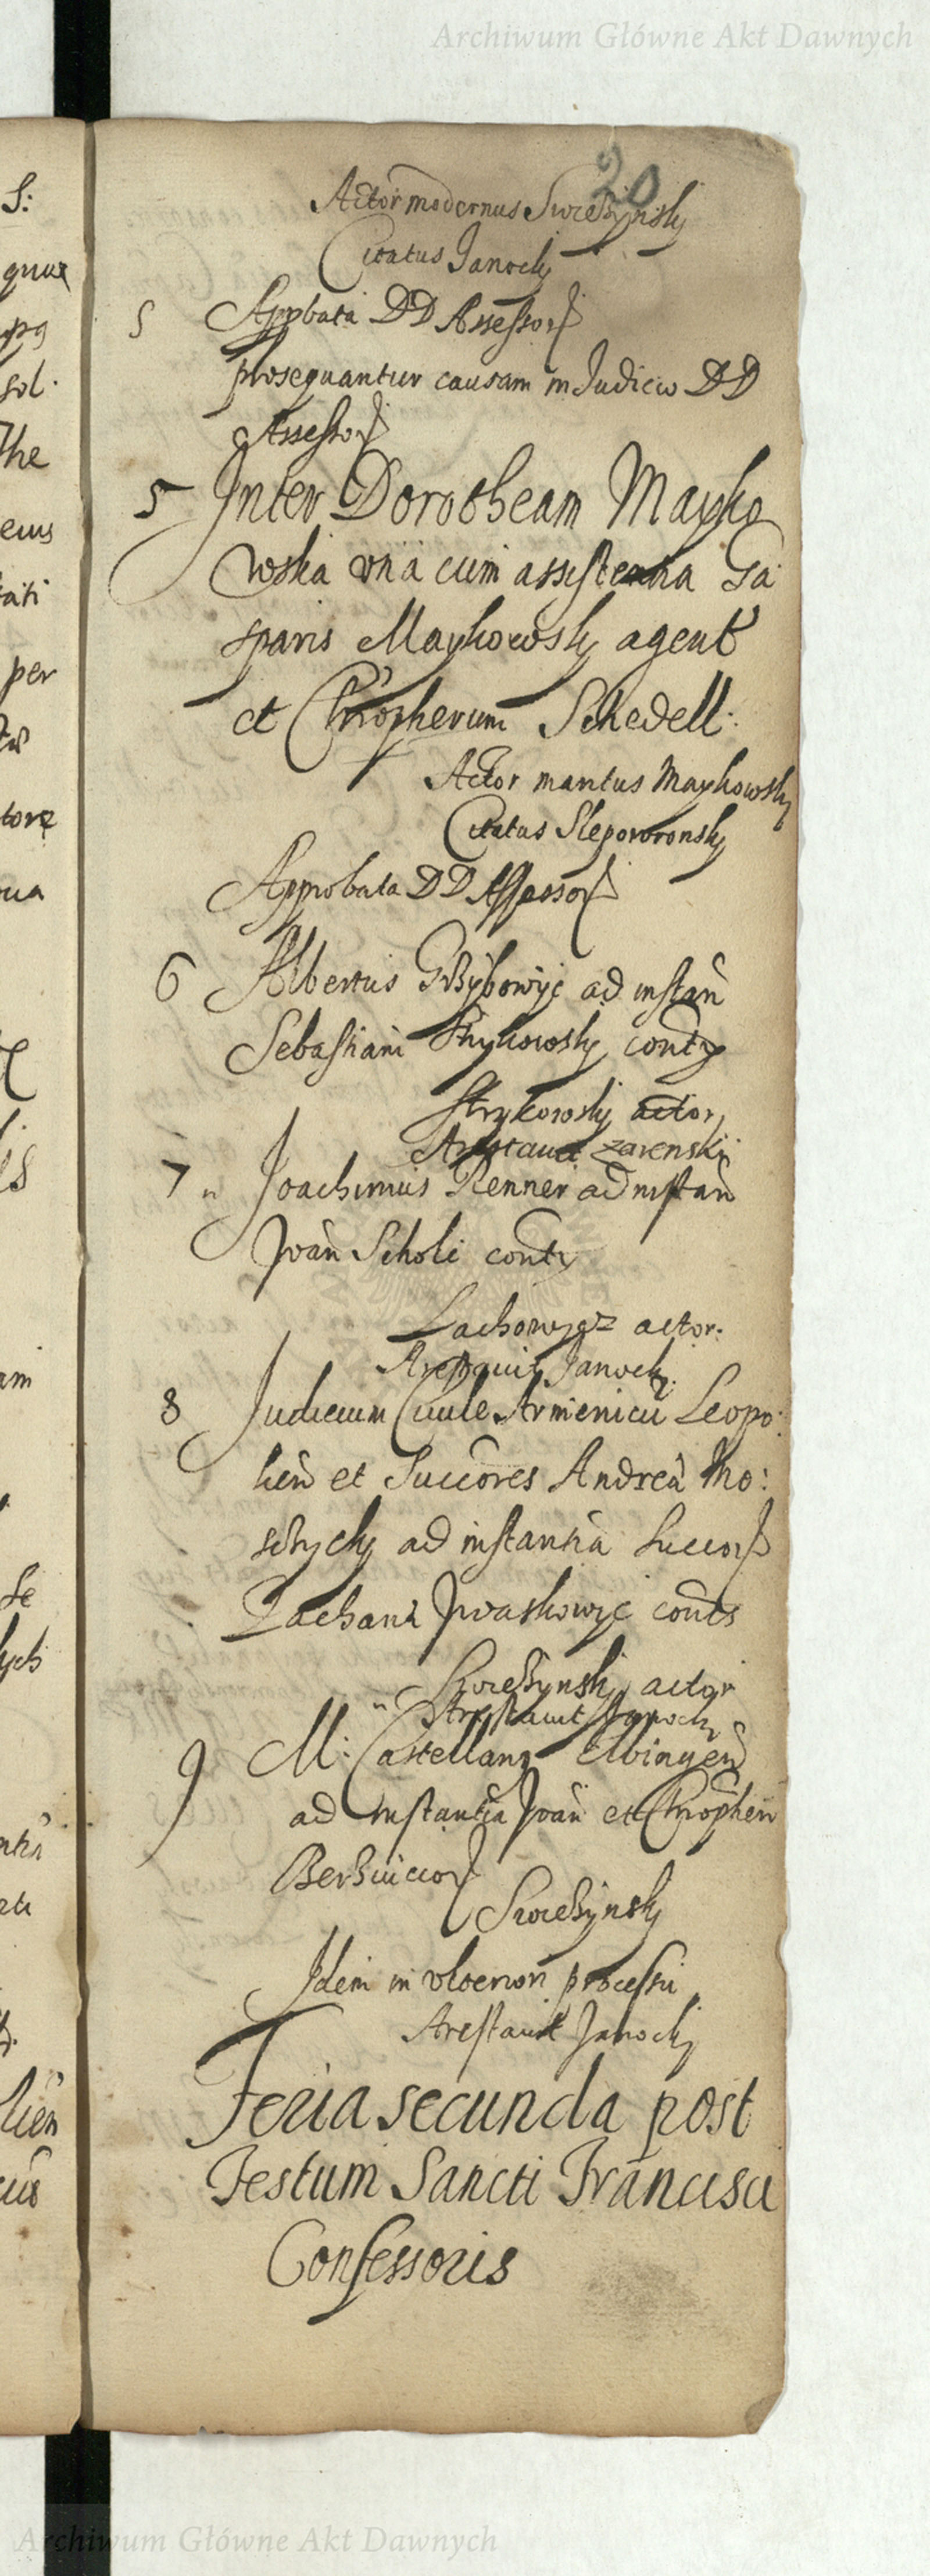 Archiwum Główne Akt Dawnych
20
Actor modernus Swieszynsky
Citatus Janocky
S Appbata DD Assessor
prosequantur causam in Judicio DD
Assessor
5 Inter Dorotheam Mayko
wska una cum assistentia Ga
sparis Maykowsky agent
et Chrōpherum Schedell:
Actor maritus Maykowsky
Citatus Slepowronsky
Approbata DD Assessor
6 Albertus Grzybowyc ad instan
Sebastiani Strykowsky contr
Strykowsky actor
Arestauit Zarenski
7 Joachimus Renner ad instan
Joan Scholi contr
Lachowycz actor.
Arestauit Janocky.
8 Judicium Ciuile Armenicu Leopo:
lien et Succores Andrea Mo:
ad instantia Succor
Zachari Jwaskowyc contr
Swieszynsky actor
Arestauit Janocky
9 M: Castellanq Elbingen
ad instantia Joan et Chrōpheri
Swieszynsky
Idem in processu
Arestauit Janocky
Feria secunda post
Festum Sancti Francisci
Confessoris
Archiwum Główne Akt Dawnych